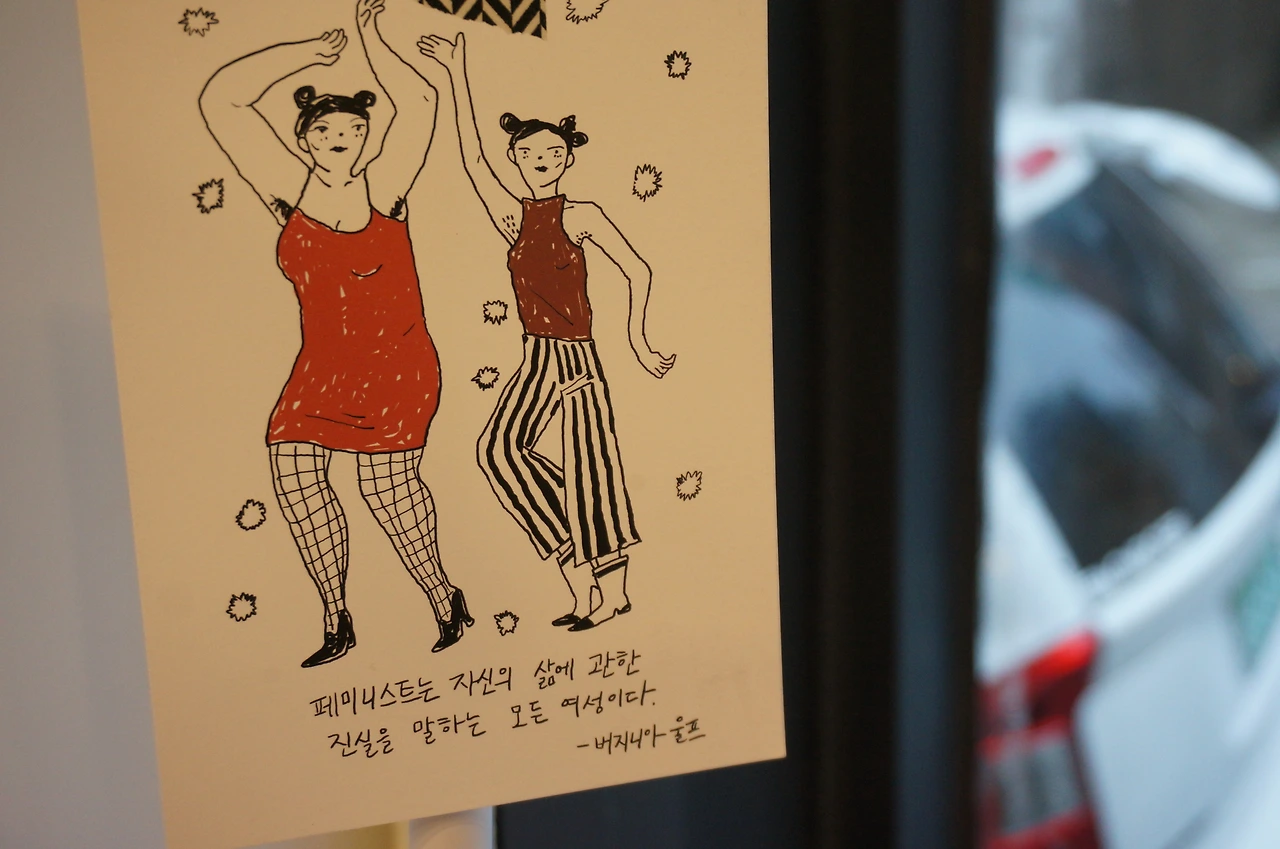 페미니스트는 자신의 삶에 관한
진실을 말하는 모든 여성이다.
- 버지니아 울프